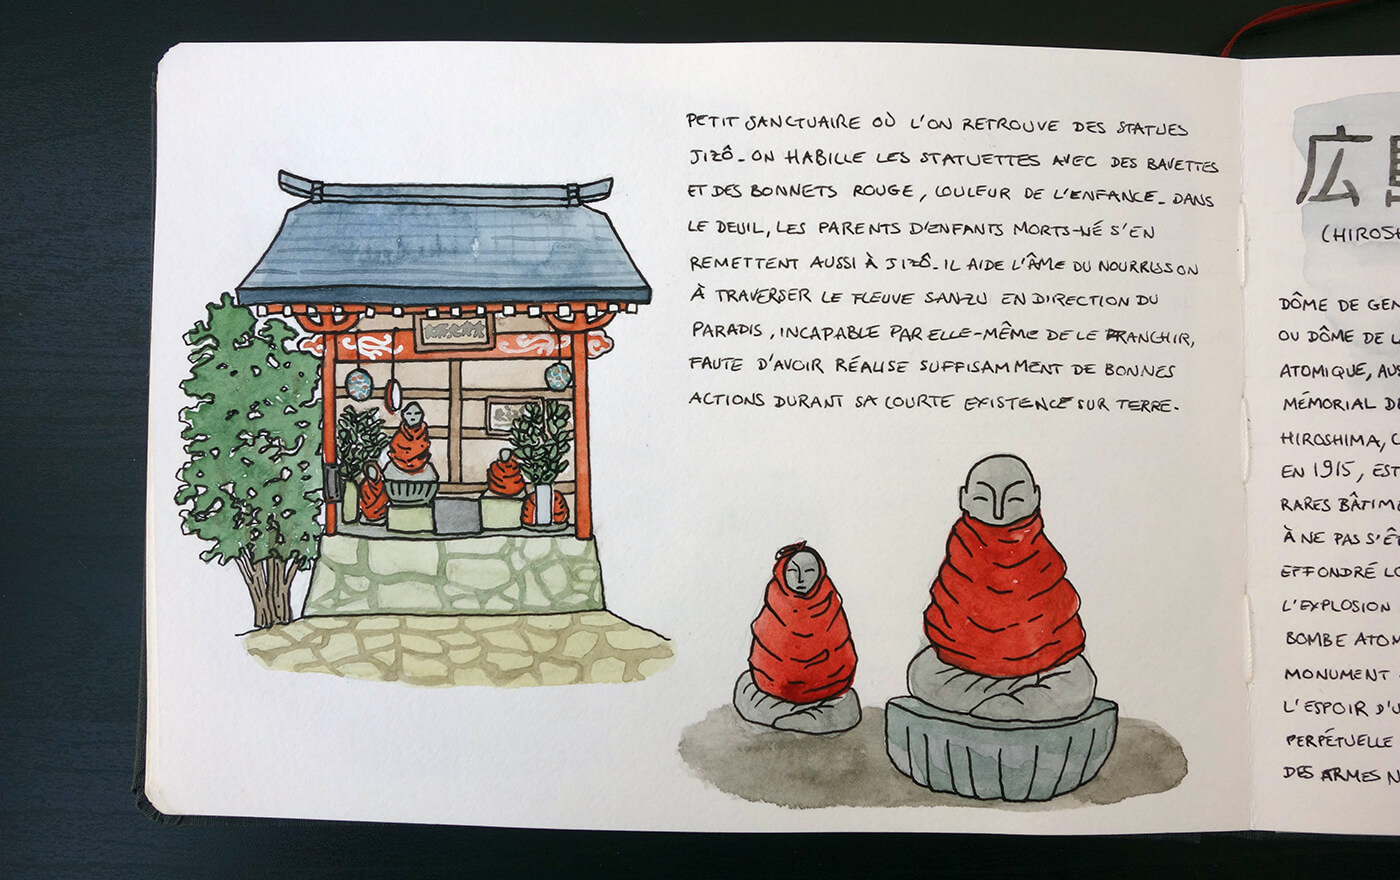 PETIT SANCTUAIRE OÙ L'ON RETROUVE DES STATUES
JIZÔ. ON HABILLE LES STATUETTES AVEC DES BAVETTES
ET DES BONNETS ROUGE, COULEUR DE L'ENFANCE. DANS
LE DEUIL, LES PARENTS D'ENFANTS MORTS-NÉ S'EN
REMETTENT AUSSI À JIZÔ. IL AIDE L'ÂME DU NOURRISSON
À TRAVERSER LE FLEUVE SANZU EN DIRECTION DU
PARADIS, INCAPABLE PAR ELLE-MÊME DE LE FRANCHIR,
FAUTE D'AVOIR RÉALISÉ SUFFISAMMENT DE BONNES
ACTIONS DURANT SA COURTE EXISTENCE SUR TERRE.
広
(HIROSH
DÔME DE GEN
OU DÔME DE L
ATOMIQUE, AUS
MÉMORIAL D
HIROSHIMA, C
EN 1915, EST
RARES BÂTIM
À NE PAS S'Ê
EFFONDRÉ LO
L'EXPLOSION
BOMBE ATOM
MONUMENT
L'ESPOIR D'U
PERPÉTUELLE
DES ARMES N